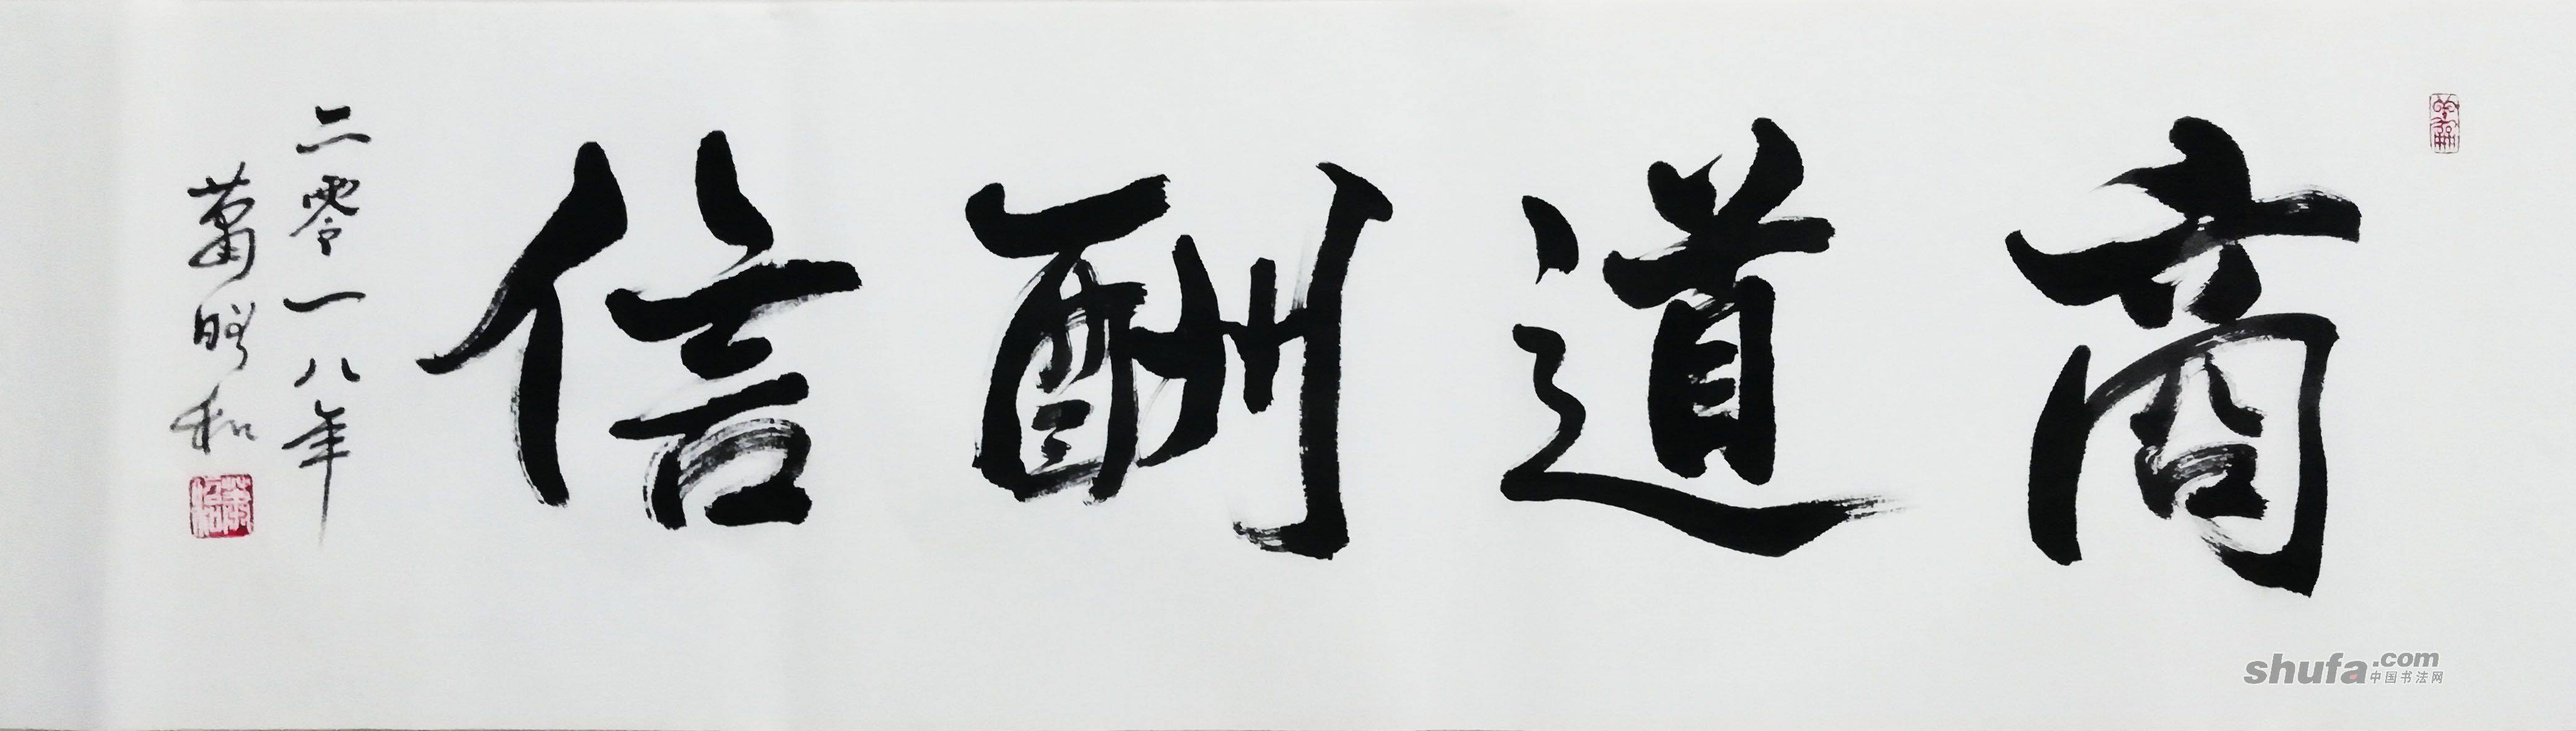 商道酬信
二零一八年
萧
和
shufa.com
中国书法网